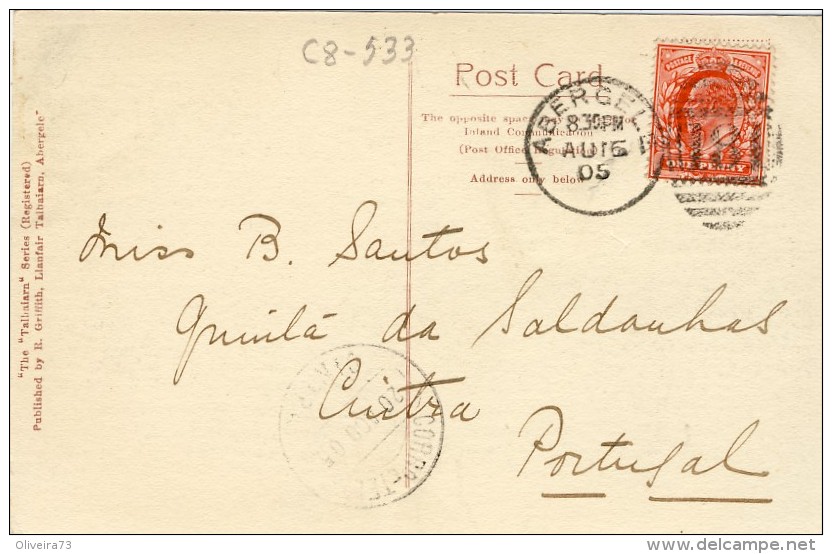 C8-533
Post Card
The opposite space may
Inland Communication
(Post Office Regulation)
Address only below
POSTAGE
ONE PENNY
ABERGELE
8.30PM
AU 16
05
Miss B. Santos
Quintâ da Saldanhas
Cintra
Portugal
"The "Talhaiarn" Series (Registered)
Published by R. Griffith, Llanfair Talhaiarn, Abergele"
CINTRA
20 05
Oliveira73
www.delcampe.net